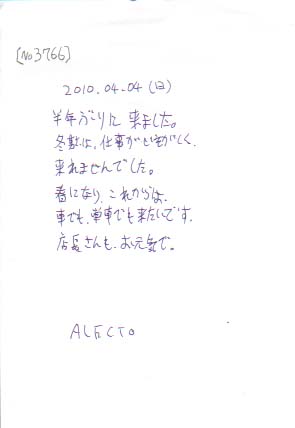 [No3766]
2010.04.04(日)
半年ぶりに来ました。
冬散は、仕事がいそがしく、
来れませんでした。
春になり、これからは、
車でも、単車でも来たいです。
店長さんも、お元気で。
ALECTO